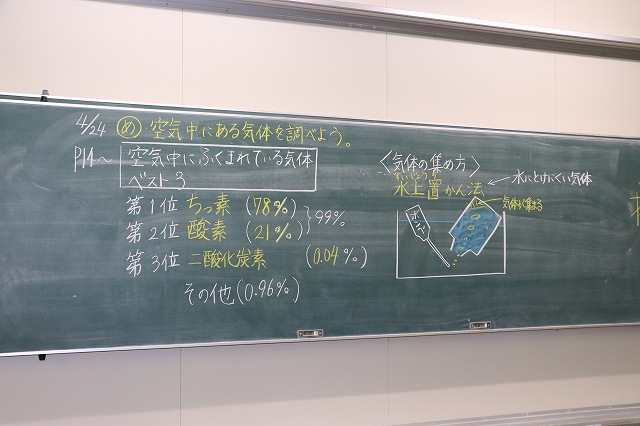 4/24 め 空気中にある気体を調べよう。
P14〜
空気中にふくまれている気体
ベスト3
第1位 ちっ素 (78%)
第2位 酸素 (21%)
99%
第3位 二酸化炭素 (0.04%)
その他 (0.96%)
〈気体の集め方〉
すいじょうち
水上置かん法
水にとけにくい気体
気体が集まる
ボンベ